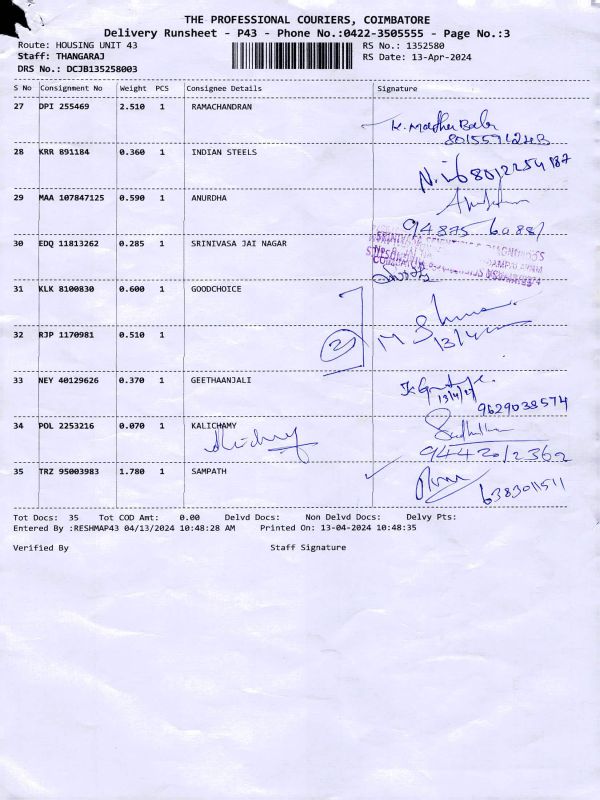 THE PROFESSIONAL COURIERS, COIMBATORE
Delivery Runsheet - P43 - Phone No.:0422-3505555 - Page No.:3
Route: HOUSING UNIT 43 RS No.: 1352580
Staff: THANGARAJ RS Date: 13-Apr-2024
DRS No.: DCJB135258003
S No Consignment No Weight PCS Consignee Details Signature
27 DPI 255469 2.510 1 RAMACHANDRAN
28 KRR 891184 0.360 1 INDIAN STEELS
8012254187
29 MAA 107847125 0.590 1 ANURDHA
30 EDQ 11813262 0.285 1 SRINIVASA JAI NAGAR
31 KLK 8100830 0.600 1 GOODCHOICE
32 RJP 1170981 0.510 1
2 13/4
33 NEY 40129626 0.370 1 GEETHAANJALI
9629038574
34 POL 2253216 0.070 1 KALICHAMY
9442012362
35 TRZ 95003983 1.780 1 SAMPATH
6383011511
Tot Docs: 35 Tot COD Amt: 0.00 Delvd Docs: Non Delvd Docs: Delvy Pts:
Entered By :RESHMAP43 04/13/2024 10:48:28 AM Printed On: 13-04-2024 10:48:35
Verified By Staff Signature